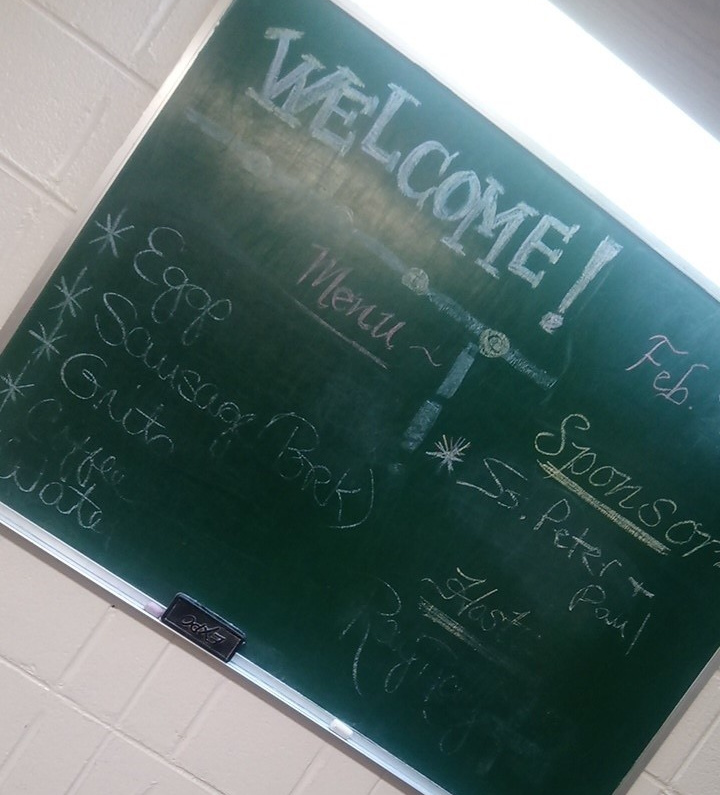 WELCOME!
Menu ~
Feb.
* Eggs
* Sausage (Pork)
* Grits
* Coffee
Water
Sponsor
* Ss. Peter +
Paul
Host
EXPO